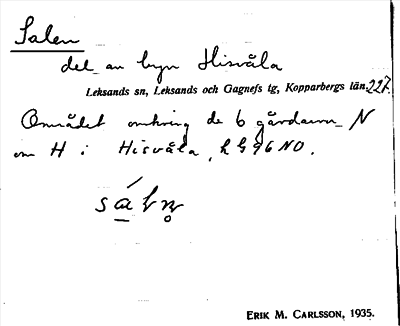 Salen
del av byn Hisvåla
Leksands sn, Leksands och Gagnefs tg, Kopparbergs län. 227.
Området omkring de 6 gårdarna N
om H i Hisvåla, LG96NO.
ERIK M. CARLSSON, 1935.